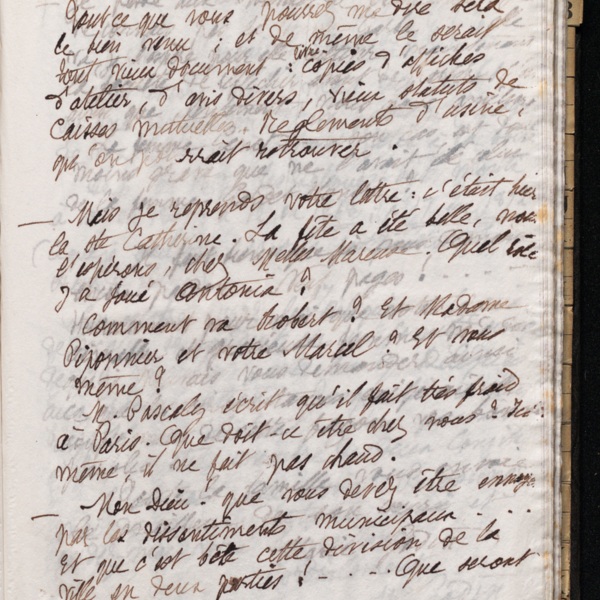 Tout ce que vous pourrez me dire sera
le bien venu ; et de même le serait
tout vieux document : copies d'affiches
d'atelier, d'avis divers, vieux statuts de
Caisses mutuelles. Règlements d'usine,
qu'on pourrait retrouver.
— Mais je reprends votre lettre : c'était hier
la Ste Catherine. La fête a été belle, nous
l'espérons, chez Melles Mareuse. Quel rôle
y a joué Antonia ?
Comment va Robert ? Et Madame
Piponnier et votre Marcel ? Et vous
même ?
M. Pascaly écrit qu'il fait très froid
à Paris. Que doit-ce être chez vous ? Ici
même, il ne fait pas chaud.
— Mon Dieu. que vous devez être
par les dissentiments municipaux . . . .
Et que c'est bête cette division de la
ville en deux parties ! . . . . Que seront